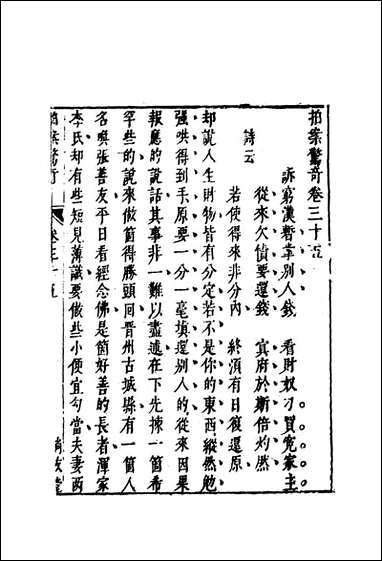 拍案驚奇卷三十五
訴窮漢暫掌別人錢　看財奴刁買冤家主
詩云
從來欠債要還錢　冥府於斯倍灼然
若使得來非分內　終須有日復還原
却說人生財物皆有分定若不是你的東西縱然勉
强哄得到手原要一分一毫填還別人的從來因果
報應的說話其事非一難以盡述在下先揀一箇希
罕些的說來做箇得勝頭回晋州古城縣有一箇人
名喚張善友平日看經念佛是箇好善的長者渾家
李氏却有些短見薄識要做些小便宜勾當夫妻兩
拍案驚奇　卷三十五　尚友堂